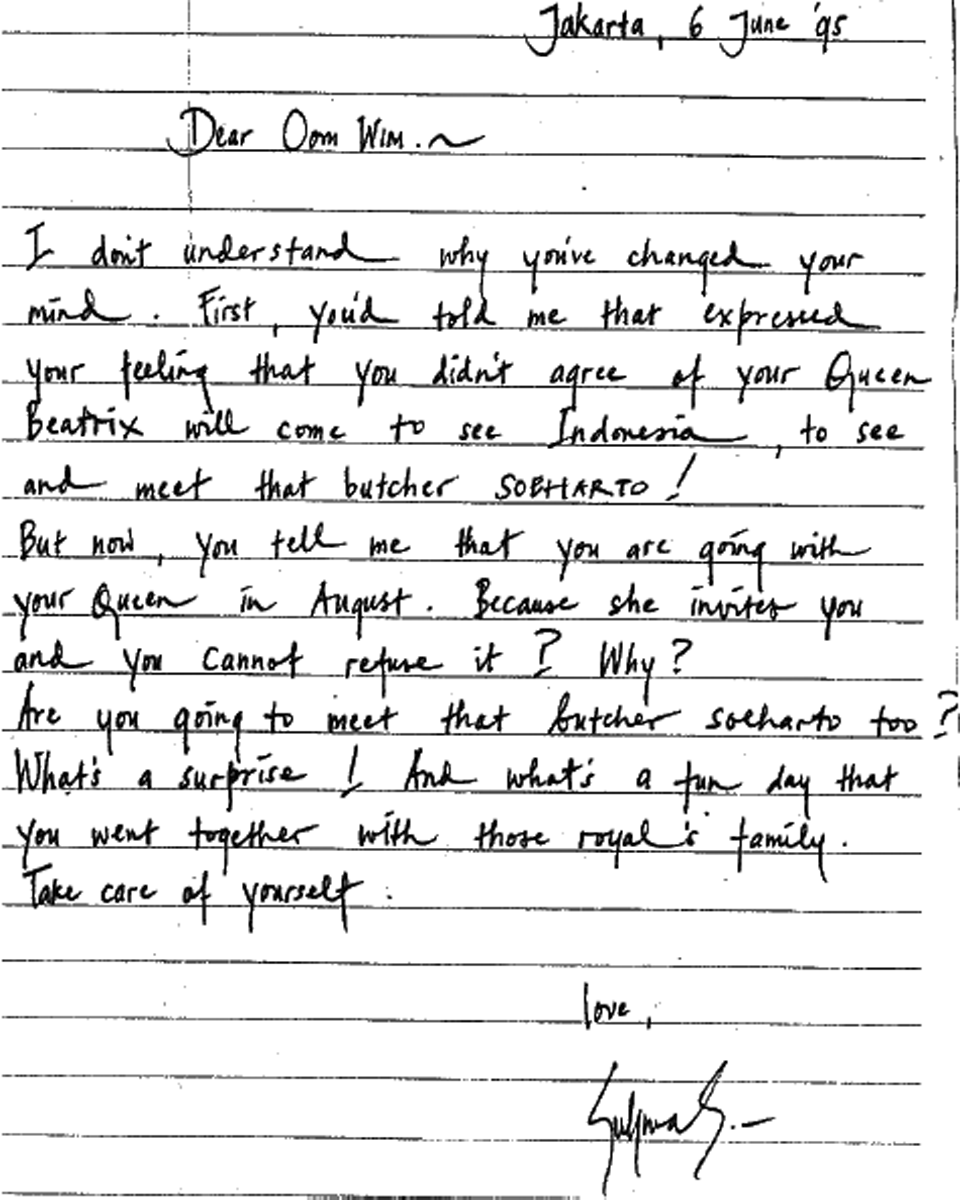 Jakarta, 6 June '95
Dear Oom Wim.~
I don't understand why you've changed your
mind. First, you'd told me that expressed
your feeling that you didn't agree of your Queen
Beatrix will come to see Indonesia, to see
and meet that butcher SOEHARTO!
But now, you tell me that you are going with
your Queen in August. Because she invites you
and you cannot refuse it? Why?
Are you going to meet that butcher soeharto too?
What's a surprise! And what's a fun day that
you went together with those royal's family.
Take care of yourself.
love,